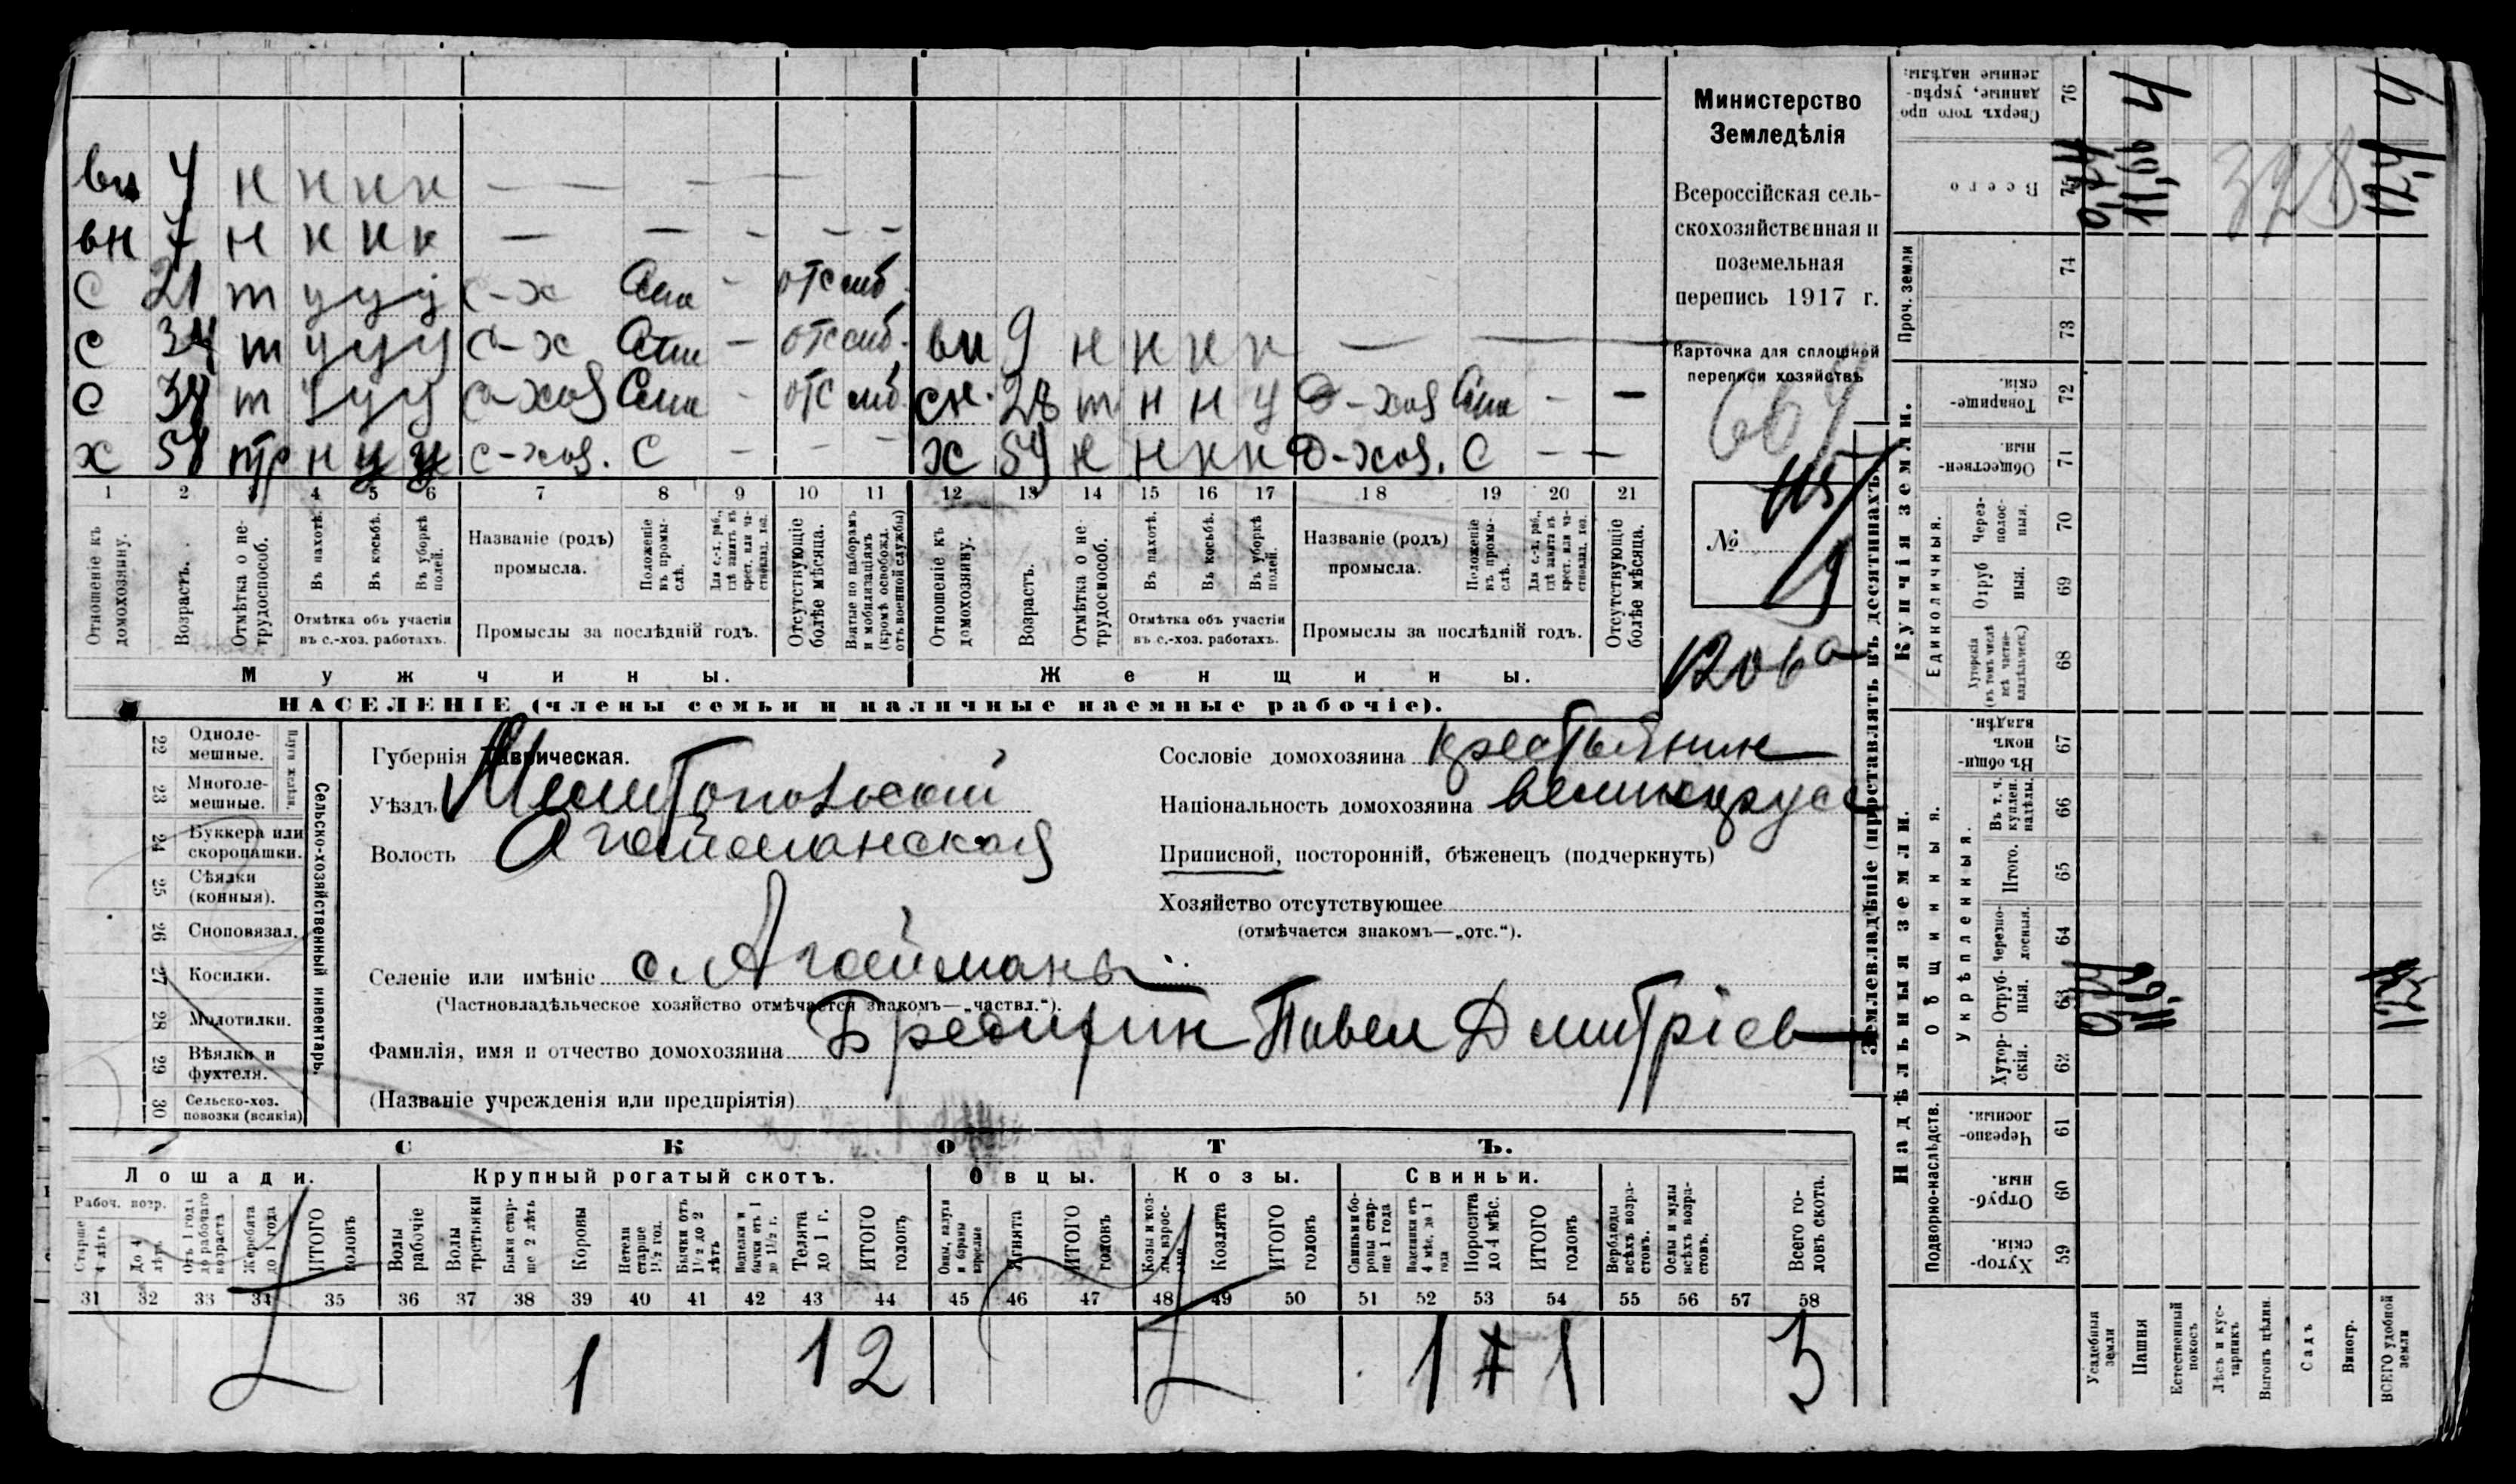 Министерство
Земледѣлія
Всероссійская сель-
скохозяйственная и
поземельная
перепись 1917 г.
Карточка для сплошной
переписи хозяйствъ
664
№ 115
19
1206а
вн 4 н н н н — — — —
вн 7 н н н н — — — — —
с 21 т у у у с-х - отс
с 34 т у у у с-х - отс вн 9 н н н н — —
с т у у у с-хоз - отс сн. 28 т н н у Д-хоз - —
х тр н у у с-хоз. С - - - ж 54 н н н н Д-хоз. С - —
1 2 3 4 5 6 7 8 9 10 11 12 13 14 15 16 17 18 19 20 21
Отношеніе къ домохозяину.
Возрастъ.
Отмѣтка о не-трудоспособ.
Въ пахотѣ.
Въ косьбѣ.
Въ уборкѣ полей.
Отмѣтка объ участіи
въ с.-хоз. работахъ.
Названіе (родъ)
промысла.
Положеніе въ промы-слѣ.
Для с.-х. раб., гдѣ занятъ въ крест. или ча-стновлад. хоз.
Промыслы за послѣдній годъ.
Отсутствующіе болѣе мѣсяца.
Взятые по наборамъ и мобилизаціямъ (кромѣ освобожд. отъ военной службы)
Отношеніе къ домохозяину.
Возрастъ.
Отмѣтка о не-трудоспособ.
Въ пахотѣ.
Въ косьбѣ.
Въ уборкѣ полей.
Отмѣтка объ участіи
въ с.-хоз. работахъ.
Названіе (родъ)
промысла.
Положеніе въ промы-слѣ.
Для с.-х. раб., гдѣ занята въ крест. или ча-стновлад. хоз.
Промыслы за послѣдній годъ.
Отсутствующіе болѣе мѣсяца.
Мужчины. Женщины.
НАСЕЛЕНІЕ (члены семьи и наличные наемные рабочіе).
22 Одноле-мешные.
23 Многоле-мешные.
Плуги желѣзн.
24 Буккера или скоропашки.
25 Сѣялки (конныя).
26 Сноповязал.
27 Косилки.
28 Молотилки.
29 Вѣялки и фухтеля.
30 Сельско-хоз. повозки (всякія)
Сельско-хозяйственный инвентарь.
Губернія Таврическая.
Уѣздъ Мелитопольскій
Волость Агайманская
Селеніе или имѣніе с. Агайманы
(Частновладѣльческое хозяйство отмѣчается знакомъ—„частвл.“).
Фамилія, имя и отчество домохозяина Павел Дмитріев
(Названіе учрежденія или предпріятія)
Сословіе домохозяина крестьянин
Національность домохозяина великорусс
Приписной, посторонній, бѣженецъ (подчеркнуть)
Хозяйство отсутствующее
(отмѣчается знакомъ—„отс.“).
СКОТЪ.
Лошади. Крупный рогатый скотъ. Овцы. Козы. Свиньи.
Рабоч. возр.
Старше 4 лѣтъ
До 4 лѣтъ
Отъ 1 года до рабочаго возраста
Жеребята до 1 года
ИТОГО головъ
Волы рабочіе
Волы третьяки
Быки стар-ше 2 лѣтъ
Коровы
Нетели старше 1½ год.
Бычки отъ 1½ до 2 лѣтъ
Подтелки и бычки отъ 1 до 1½ г.
Телята до 1 г.
ИТОГО головъ
Овцы, валухи и бараны взрослые
Ягнята
ИТОГО головъ
Козы и коз-лы взрос-лые
Козлята
ИТОГО головъ
Свиньи и бо-ровы стар-ше 1 года
Подсвинки отъ 4 мѣс. до 1 года
Поросята до 4 мѣс.
ИТОГО головъ
Верблюды всѣхъ возра-стовъ.
Ослы и мулы всѣхъ возра-стовъ.
Всего го-ловъ скота.
31 32 33 34 35 36 37 38 39 40 41 42 43 44 45 46 47 48 49 50 51 52 53 54 55 56 57 58
1 1 2 1 1 3
Землевладѣніе (проставлять въ десятинахъ).
Надѣльныя земли.
Купчія земли.
Проч. земли
Подворно-наслѣдств.
Общинныя.
Укрѣпленныя.
Единоличныя.
59 Хутор-скія.
60 Отруб-ныя.
61 Черезпо-лосныя.
62 Хутор-скія.
63 Отруб-ныя.
64 Черезпо-лосныя.
65 Итого.
66 Въ т. ч. куплен. надѣлы.
67 Въ общин-номъ владѣн.
68 Хуторскія (въ томъ числѣ всѣ частно-владѣльческ.)
69 Отруб ныя.
70 Через-полос-ныя.
71 Обществен-ныя.
72 Товарище-скія.
73
74
75 Всего
76 Сверхъ того про данные, укрѣп-ленные надѣлы.
Усадебныя земли
Пашня
Естественный покосъ
Лѣсъ и кус-тарникъ
Выгонъ цѣлин.
Садъ
Виногр.
ВСЕГО удобной земли
11,9
12,4
11,9
328
12,4
4
4